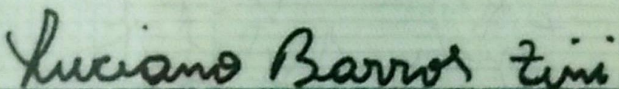 Luciano Barros Zini